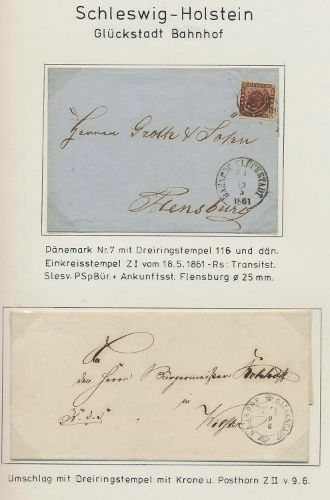 Schleswig-Holstein
Glückstadt Bahnhof
Herren Groth & Sohn
Flensburg
BAHNH: GLÜCKSTADT
Z I
18
5
1861
Dänemark Nr.7 mit Dreiringstempel 116 und dän.
Einkreisstempel Z I vom 18.5.1861-Rs: Transitst.
Slesv. PSpBür.+ Ankunftsst. Flensburg ø 25 mm.
An
den Herrn Bürgermeister
in
Umschlag mit Dreiringstempel mit Krone u. Posthorn Z II v. 9.6.